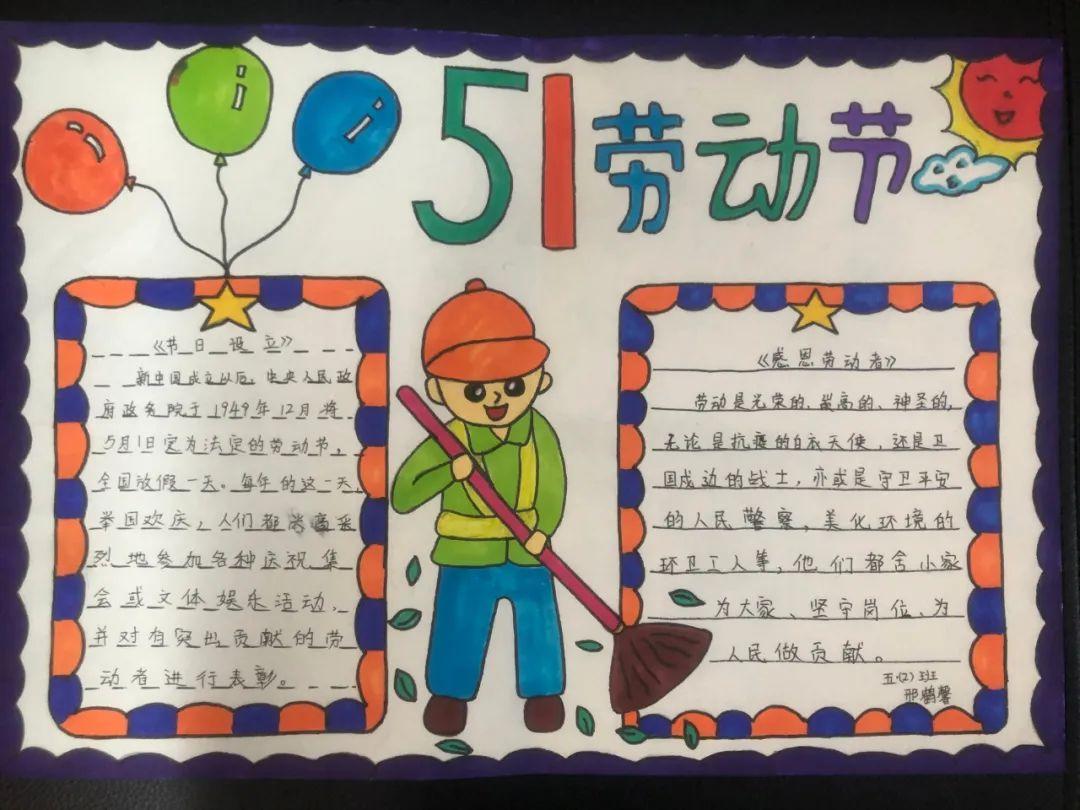 51劳动节
《节日设立》
新中国成立以后，中央人民政
府政务院于1949年12月将
5月1日定为法定的劳动节，
全国放假一天。每年的这一天，
举国欢庆，人们都
烈地参加各种庆祝集
会或文体娱乐活动，
并对有突出贡献的劳
动者进行表彰。
《感恩劳动者》
劳动是光荣的、崇高的、神圣的，
无论是抗疫的白衣天使，还是卫
国戍边的战士，亦或是守卫平安
的人民警察，美化环境的
环卫工人等，他们都舍小家
为大家、坚守岗位、为
人民做贡献。
五（2）班
邢鹤馨